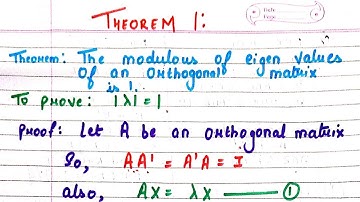 THEOREM 1:
Date
Page
Theorem: The modulous of eigen values
of an orthogonal matrix
is 1.
To prove: |λ| = 1
Proof: Let A be an orthogonal matrix
So, AA' = A'A = I
also, AX = λX —— ①